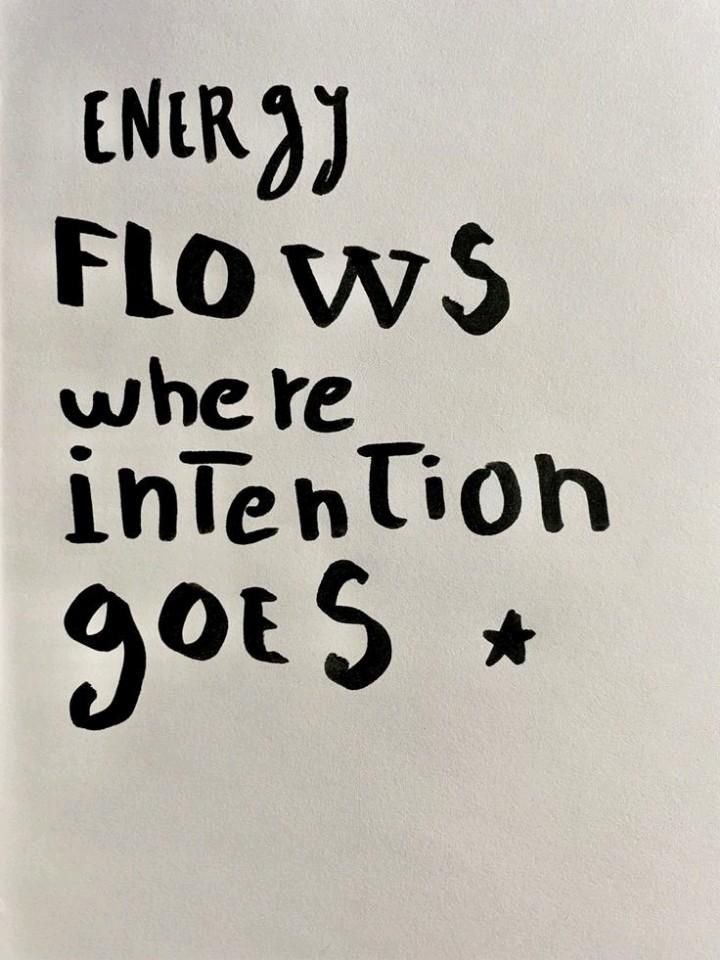 ENERgy
FLOWS
where
intention
gOES